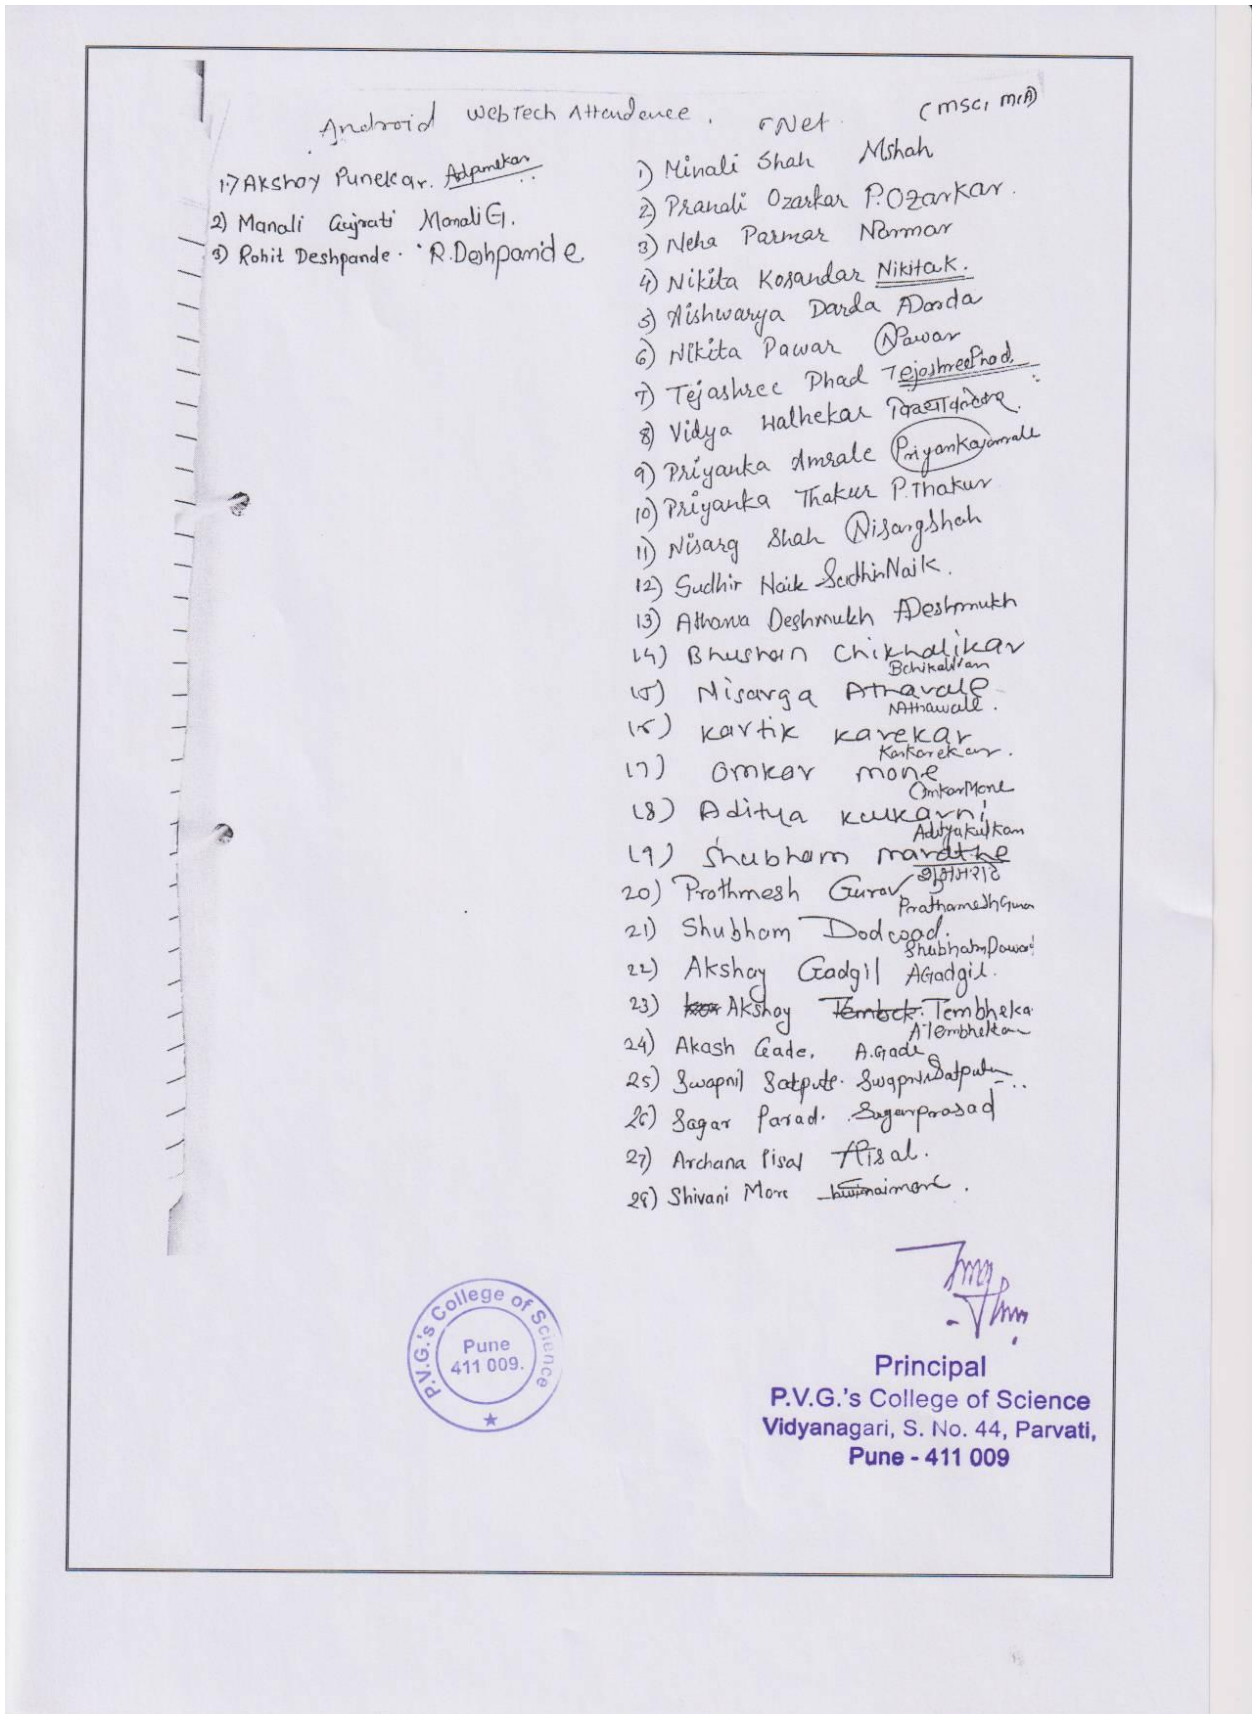 Android WebTech Attendence. .Net (MSCI MCA)
1) Akshay Punekar.
2) Manali Gujrati ManaliG.
3) Rohit Deshpande. R.Deshpande
1) Minali Shah MShah
2) Pranali Ozarkar P.Ozarkar.
3) Neha Parmar
4) Nikita Kosandar NikitaK.
5) Aishwarya Darda ADarda
6) Nikita Pawar NPawar
7) Tejashree Phad TejashreePhad.
8) Vidya Walhekar
9) Priyanka Amrale Priyankaamrale
10) Priyanka Thakur P.Thakur
11) Nisarg Shah NisargShah
12) Sudhir Naik SudhirNaik.
13) Atharva Deshmukh ADeshmukh
14) Bhushan Chikhalikar
15) Nisarga Athavale
NAthawale.
16) Kartik Karekar
17) Omkar mone
OmkarMone
18) Aditya Kulkarni
19) Shubham marathe
20) Prothmesh Gurav
21) Shubham
22) Akshay Gadgil AGadgil.
23) Akshay Tembheka
24) Akash Gade. A.Gade
25) Swapnil Satpute.
26) Sagar Parad. Sagarprasad
27) Archana Pisal APisal.
28) Shivani More
P.V.G.'s College of Science
Pune
411 009.
Principal
P.V.G.'s College of Science
Vidyanagari, S. No. 44, Parvati,
Pune - 411 009